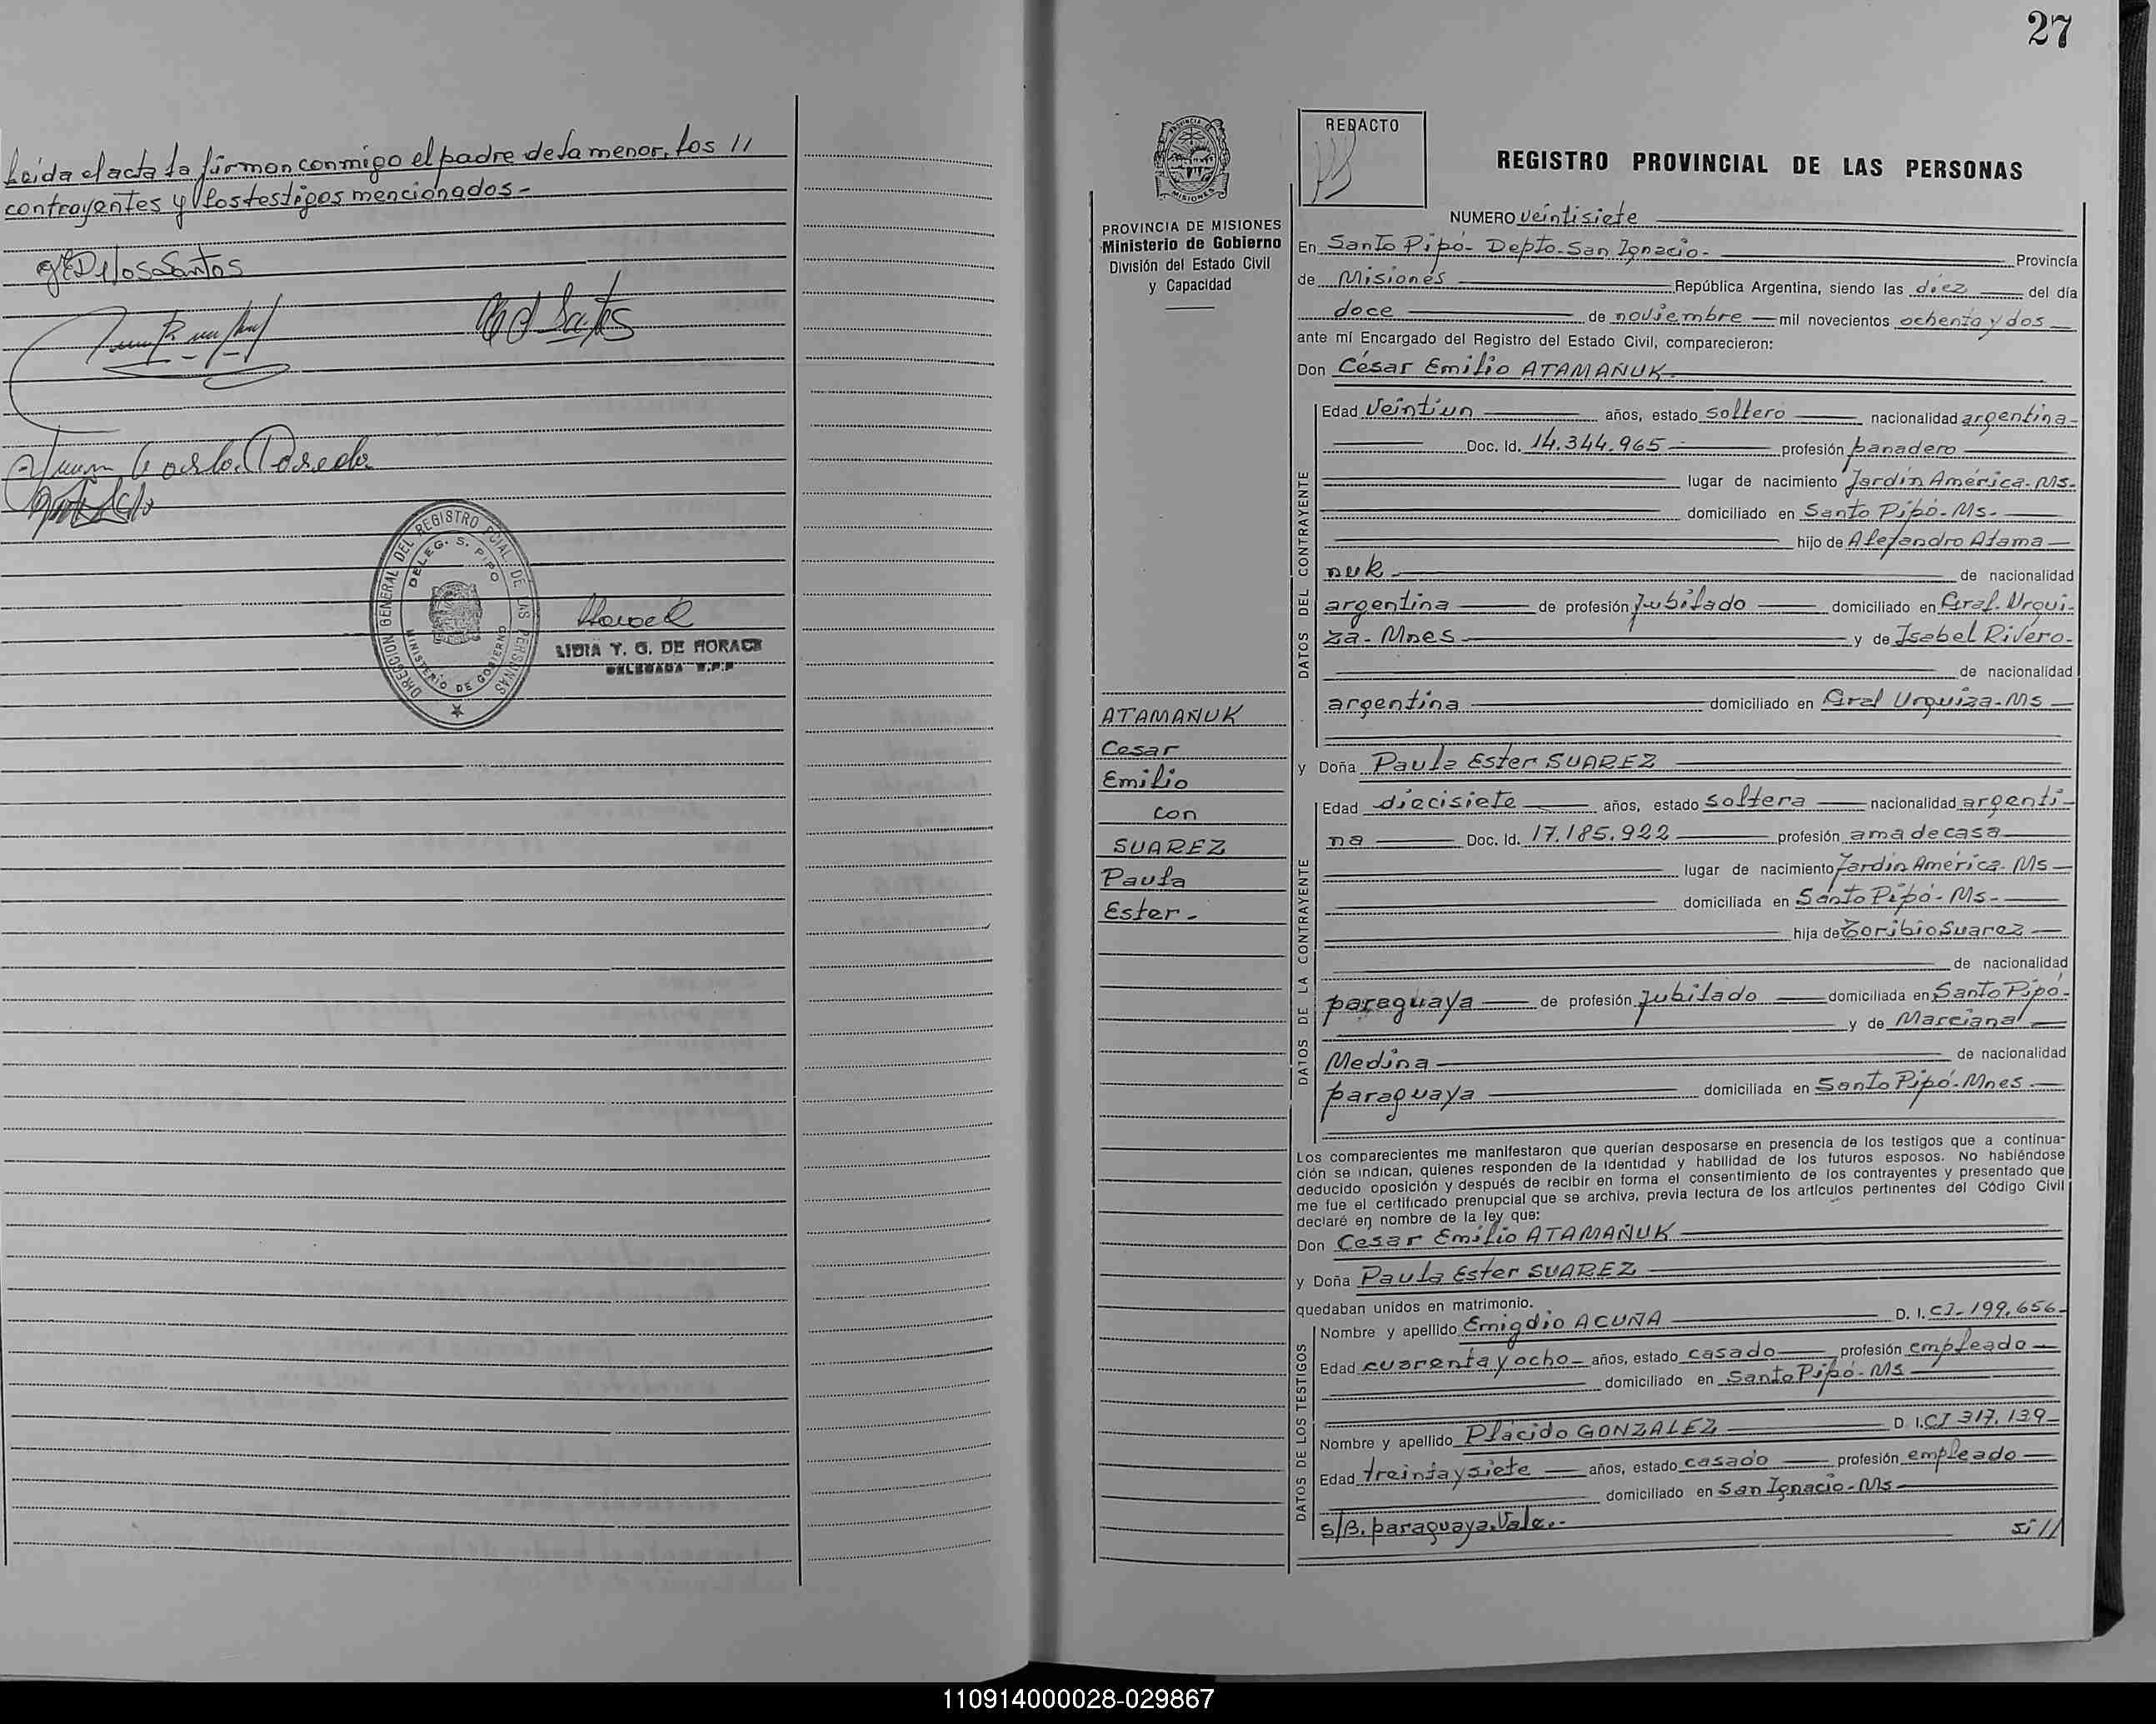 Leida el acta la firman conmigo el padre de la menor, los //
contrayentes y los testigos mencionados.-
DIRECCION GENERAL DEL REGISTRO PCIAL. DE LAS PERSONAS
DELEG. S. PIPO
MINISTERIO DE GOBIERNO
LIDIA Y. G. DE HORACK
DELEGADA R.P.P
27
REDACTO
REGISTRO PROVINCIAL DE LAS PERSONAS
PROVINCIA DE MISIONES
Ministerio de Gobierno
División del Estado Civil
y Capacidad
ATAMAÑUK
Cesar
Emilio
con
SUAREZ
Paula
Ester.-
NUMERO veintisiete
En Santo Pipó- Depto-San Ignacio- Provincia
de Misiones República Argentina, siendo las diez del día
doce de noviembre mil novecientos ochenta y dos
ante mí Encargado del Registro del Estado Civil, comparecieron:
Don César Emilio ATAMAÑUK
DATOS DEL CONTRAYENTE
Edad veintiun años, estado soltero nacionalidad argentina-
Doc. Id. 14.344.965 profesión panadero
lugar de nacimiento Jardín América-Ms-
domiciliado en Santo Pipó-Ms-
hijo de Alejandro Atama
nuk de nacionalidad
argentina de profesión jubilado domiciliado en Gral-Urqui-
za-Mnes y de Isabel Rivero-
de nacionalidad
argentina domiciliado en Gral Urquiza-Ms
y Doña Paula Ester SUAREZ
DATOS DE LA CONTRAYENTE
Edad diecisiete años, estado soltera nacionalidad argenti-
na Doc. Id. 17.185.922 profesión ama de casa
lugar de nacimiento Jardín América-Ms
domiciliada en Santo Pipó-Ms-
hija de Toribio Suarez
de nacionalidad
paraguaya de profesión jubilado domiciliada en Santo Pipó-
y de Marciana
Medina de nacionalidad
paraguaya domiciliada en Santo Pipó-Mnes
Los comparecientes me manifestaron que querían desposarse en presencia de los testigos que a continua-
ción se indican, quienes responden de la identidad y habilidad de los futuros esposos. No habiéndose
deducido oposición y después de recibir en forma el consentimiento de los contrayentes y presentado que
me fue el certificado prenupcial que se archiva, previa lectura de los artículos pertinentes del Código Civil
declaré en nombre de la ley que:
Don Cesar Emilio ATAMAÑUK
y Doña Paula Ester SUAREZ
quedaban unidos en matrimonio.
DATOS DE LOS TESTIGOS
Nombre y apellido Emigdio ACUÑA D. I. CI-199.656-
Edad cuarenta y ocho años, estado casado profesión empleado
domiciliado en Santo Pipó-Ms
Nombre y apellido Plácido GONZALEZ D. I. CI 317.139
Edad treinta y siete años, estado casado profesión empleado
domiciliado en San Ignacio-Ms
S/B. paraguaya. Vale.-
Si //
110914000028-029867